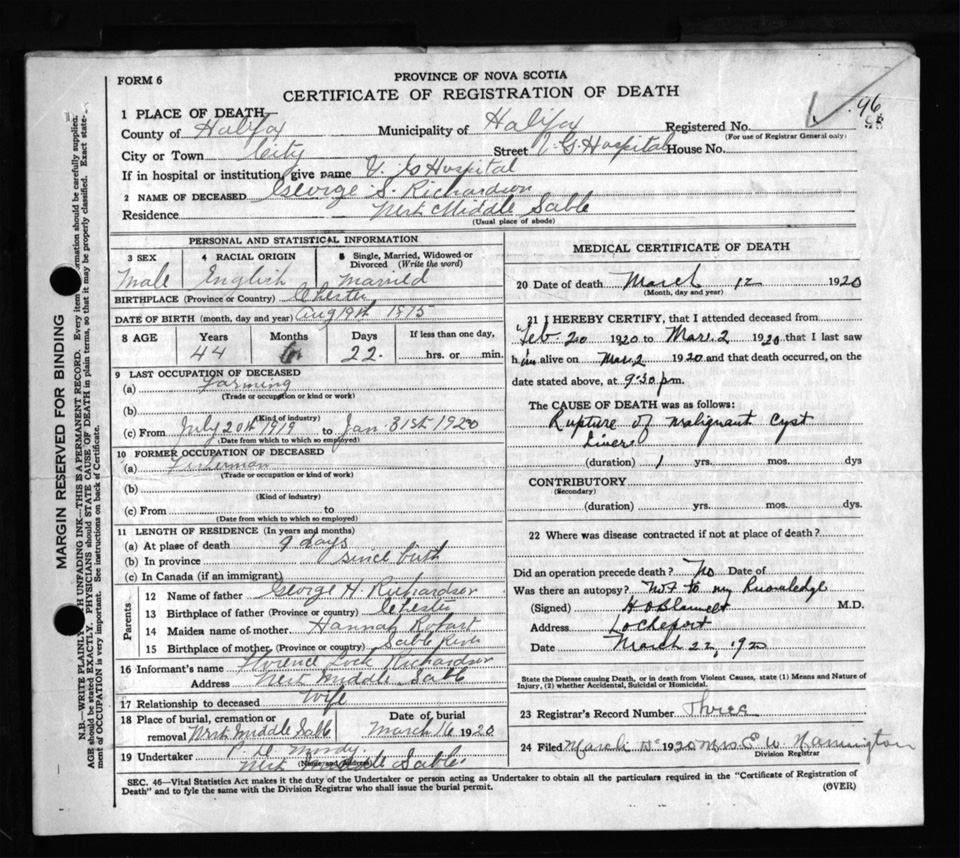 FORM 6
PROVINCE OF NOVA SCOTIA
CERTIFICATE OF REGISTRATION OF DEATH
96
1 PLACE OF DEATH
County of Halifax Municipality of Halifax Registered No.
(For use of Registrar General only)
City or Town City Street V. G. Hospital House No.
If in hospital or institution, give name V. G. Hospital
2 NAME OF DECEASED George S. Richardson
Residence West Middle Sable
(Usual place of abode)
PERSONAL AND STATISTICAL INFORMATION
3 SEX 4 RACIAL ORIGIN 5 Single, Married, Widowed or Divorced (Write the word)
Male English Married
BIRTHPLACE (Province or Country) Chester
DATE OF BIRTH (month, day and year) Aug 19th 1875
8 AGE Years Months Days If less than one day,
44 6 22 hrs. or min.
9 LAST OCCUPATION OF DECEASED
(a) Farming
(Trade or occupation or kind or work)
(b)
(Kind of industry)
(c) From July 20th 1919 to Jan. 31st 1920
(Date from which to which so employed)
10 FORMER OCCUPATION OF DECEASED
(a) Fisherman
(Trade or occupation or kind of work)
(b)
(Kind of industry)
(c) From to
(Date from which to which so employed)
11 LENGTH OF RESIDENCE (In years and months)
(a) At place of death 9 days
(b) In province since birth
(c) In Canada (if an immigrant)
Parents
12 Name of father George H. Richardson
13 Birthplace of father (Province or country) Chester
14 Maiden name of mother Hannah
15 Birthplace of mother (Province or country) Sable River
16 Informant's name Florence Lock Richardson
Address West Middle Sable
17 Relationship to deceased Wife
18 Place of burial, cremation or removal West Middle Sable Date of burial March 16 1920
19 Undertaker P. Moody
West Middle Sable
MEDICAL CERTIFICATE OF DEATH
20 Date of death March 12 1920
(Month, day and year)
21 I HEREBY CERTIFY, that I attended deceased from
Feb. 20 1920 to Mar. 2 1920 that I last saw
him alive on Mar. 2 1920 and that death occurred, on the
date stated above, at 9:30 p.m.
The CAUSE OF DEATH was as follows:
Rupture of malignant cyst
Liver
(duration) 1 yrs. mos. dys
CONTRIBUTORY
(Secondary)
(duration) yrs. mos. dys.
22 Where was disease contracted if not at place of death?
Did an operation precede death? No Date of
Was there an autopsy? Not to my Knowledge
(Signed) M.D.
Address Lockeport
Date March 22, 1920
State the Disease causing Death, or in death from Violent Causes, state (1) Means and Nature of
Injury, (2) whether Accidental, Suicidal or Homicidal.
23 Registrar's Record Number Three
24 Filed March 1920 Mrs. E. W.
Division Registrar
SEC. 46—Vital Statistics Act makes it the duty of the Undertaker or person acting as Undertaker to obtain all the particulars required in the "Certificate of Registration of
Death" and to fyle the same with the Division Registrar who shall issue the burial permit.
(OVER)
MARGIN RESERVED FOR BINDING
N.B.—WRITE PLAINLY UNFADING INK—THIS IS A PERMANENT RECORD. Every item should be carefully supplied.
AGE should be stated EXACTLY. PHYSICIANS should STATE CAUSE OF DEATH in plain terms, so that it may be properly classified. Exact state-
ment of OCCUPATION is very important. See instructions on back of Certificate.